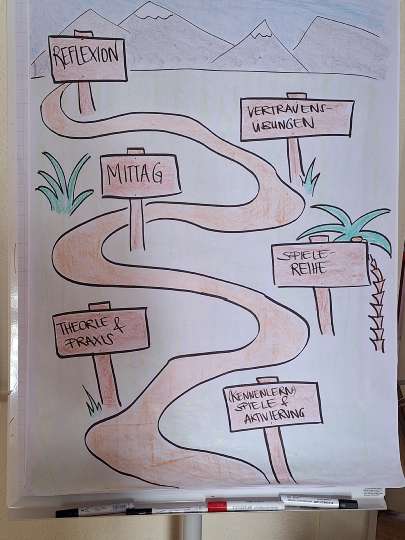 REFLEXION
VERTRAUENS-
ÜBUNGEN
MITTAG
SPIELE-
REIHE
THEORIE &
PRAXIS
(KENNENLERN)
SPIELE &
AKTIVIERUNG